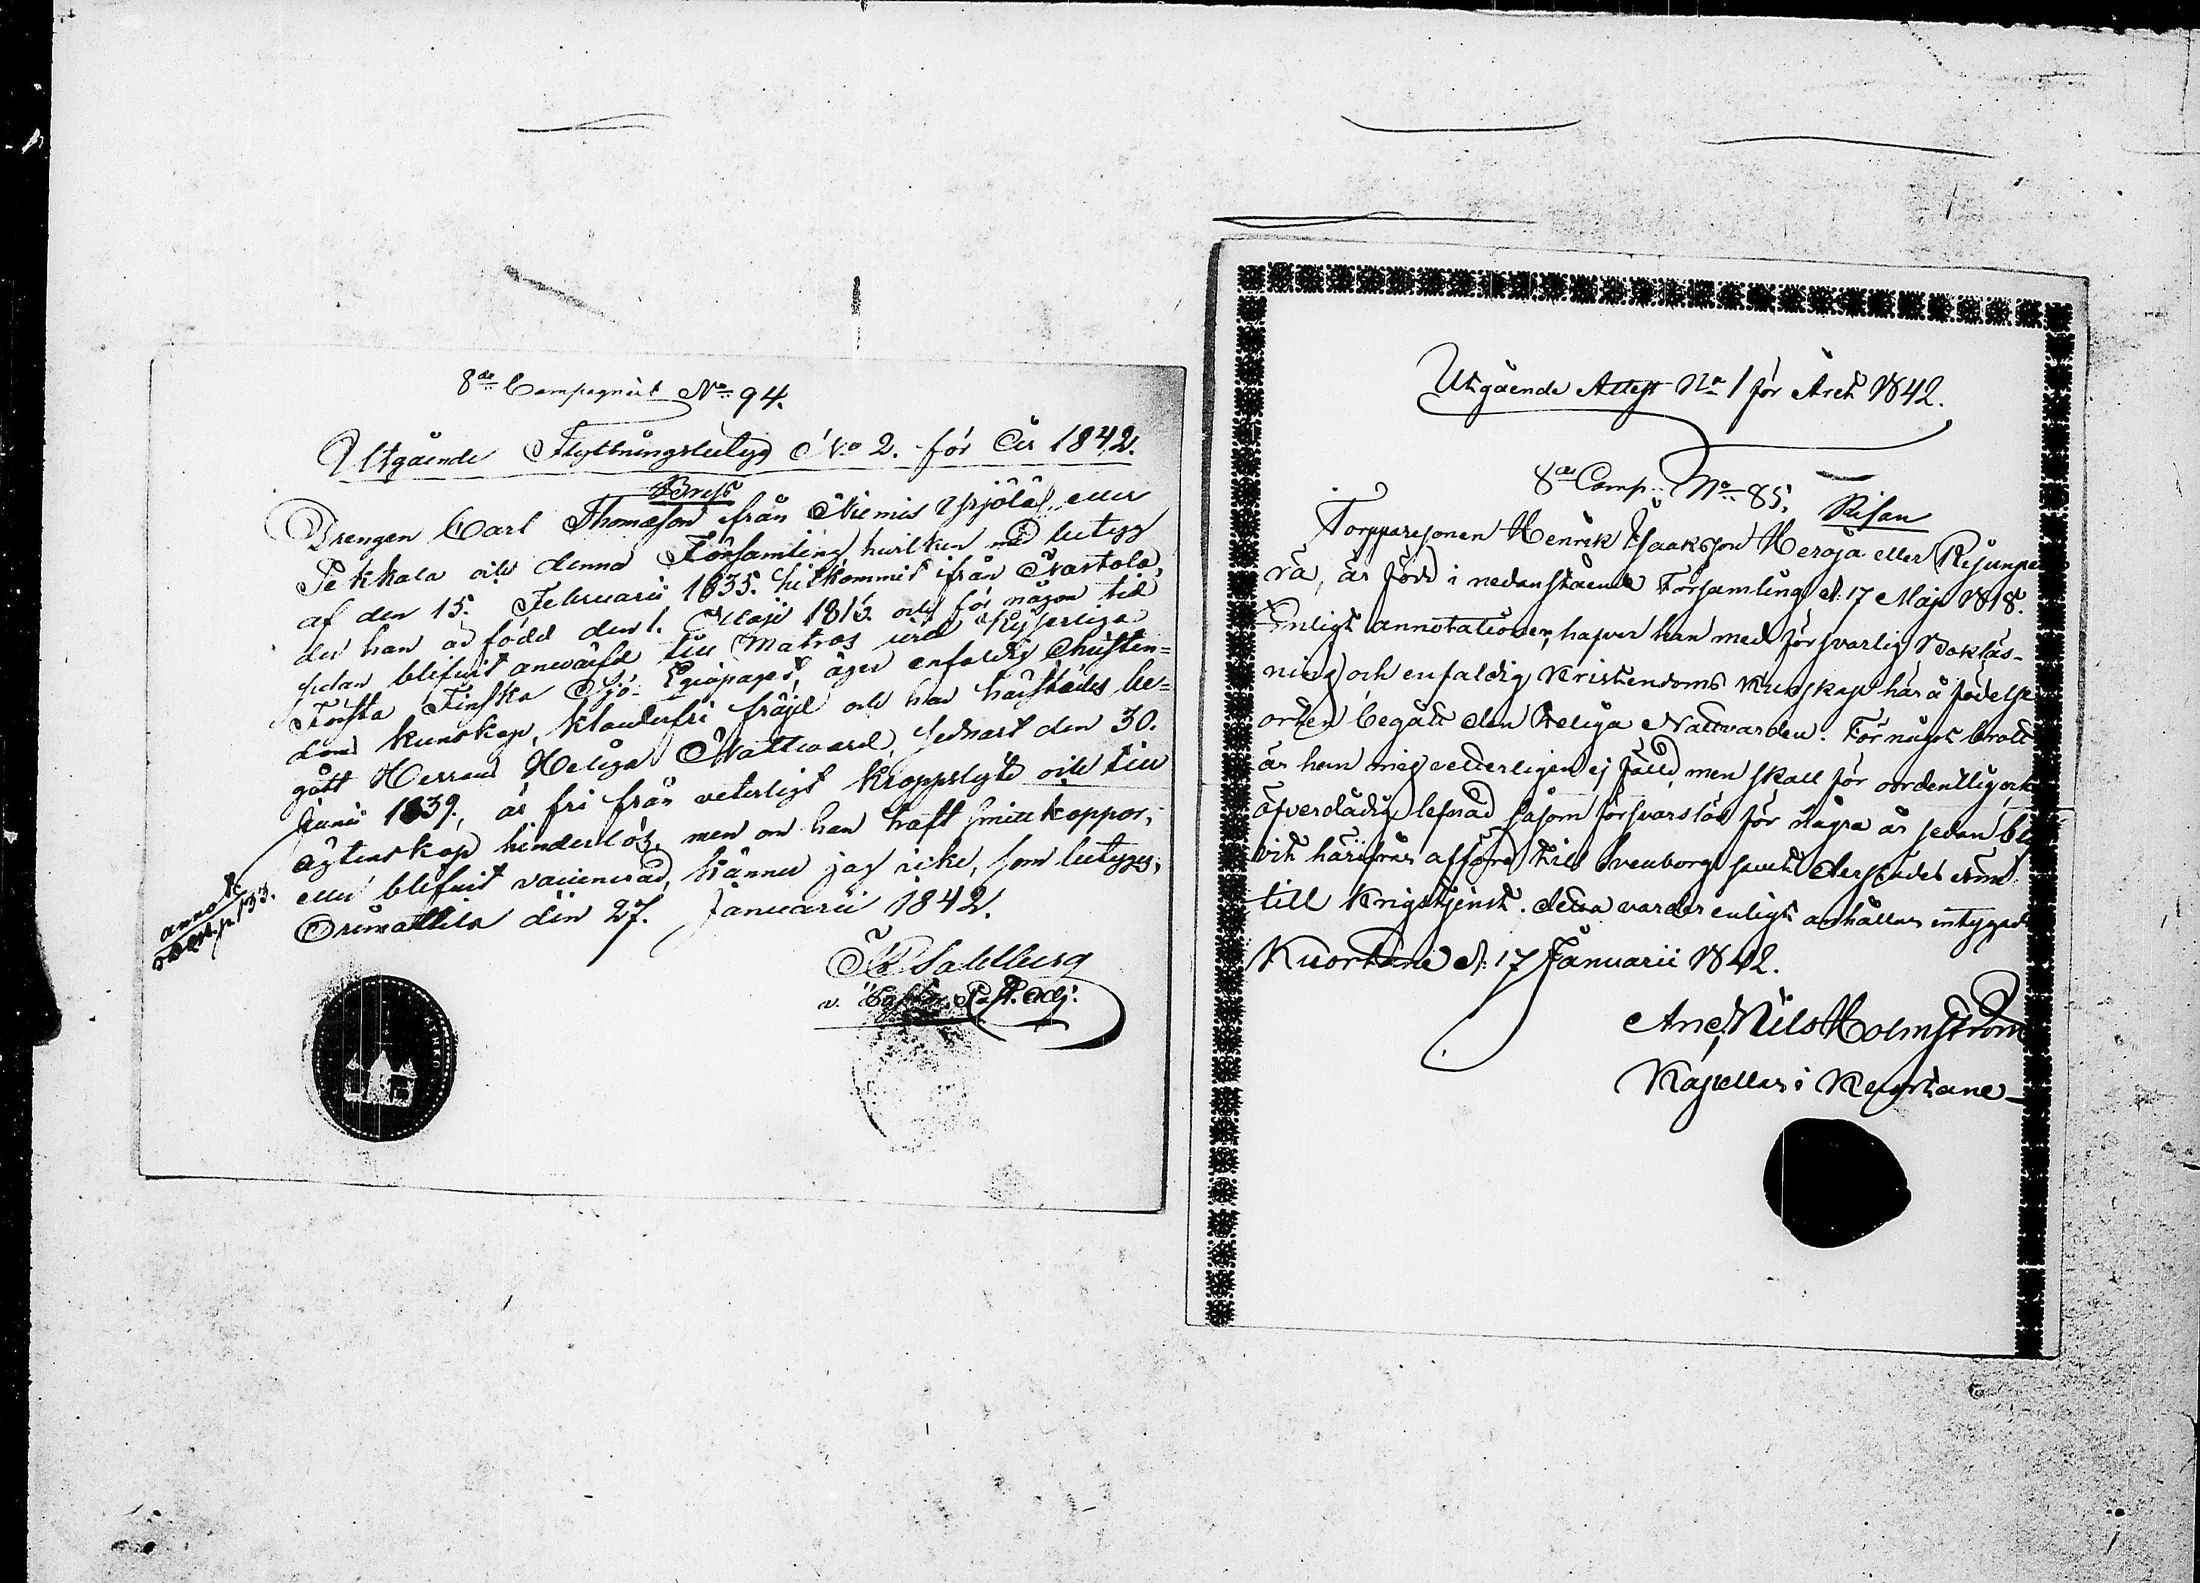 8de Compagniet No 94.
Utgående Flyttningsbetyg No 2. för År 1842.
Brejs
Drengen Carl Thomasson från Niemis Yrjölä eller
Pekkala och denna Församling, hvilken med betyg
af den 15. Februarii 1835. hitkommit ifrån Nastola,
der han är född den 1. Maji 1816. och för någon tid
sedan blifvit anvärfd till Matros vid Kejserliga
Första Finska Sjö-Equipaget, äger enfaldig Christen=
doms kunskap, klanderfri fräjd och har härstädes be=
gått Herrans Heliga Nattvard, sednast den 30.
Junii 1839., är fri från veterligt kroppslyte och till
ägtenskap hinderlös, men om han haft smittkoppor,
eller blifvit vaccinerad, känner jag icke, som betygas,
Orimattila den 27. Januarii 1842.
Sahlberg
v. Past. Adj.
annot.
p. 133.
Utgående Attest No 1 för Året 1842.
8de Comp. No 85.
Risan
Torpparesonen Henrik Isaaksson Heroja eller Kujunpe
rä, är född i nedanstående Församling d. 17 Maji 1818.
Enligt annotationer, hafver han med försvarlig Bokläs-
ning och enfaldig Kristendoms Kunskap här å födelse
orten begått den Heliga Nattvarden. För något brott
är han mig vetterligen ej fälld men skall för oordentlig och
öfverdådig lefnad såsom försvarslös för några år sedan bli
vit härifrån afförd till Sveaborg samt derstädes
till Krigstjenst. Detta varder enligt anhållan intygadt
Kuortane d. 17 Januarii 1842.
And. Nils Holmström
Kapellan i Kuortane